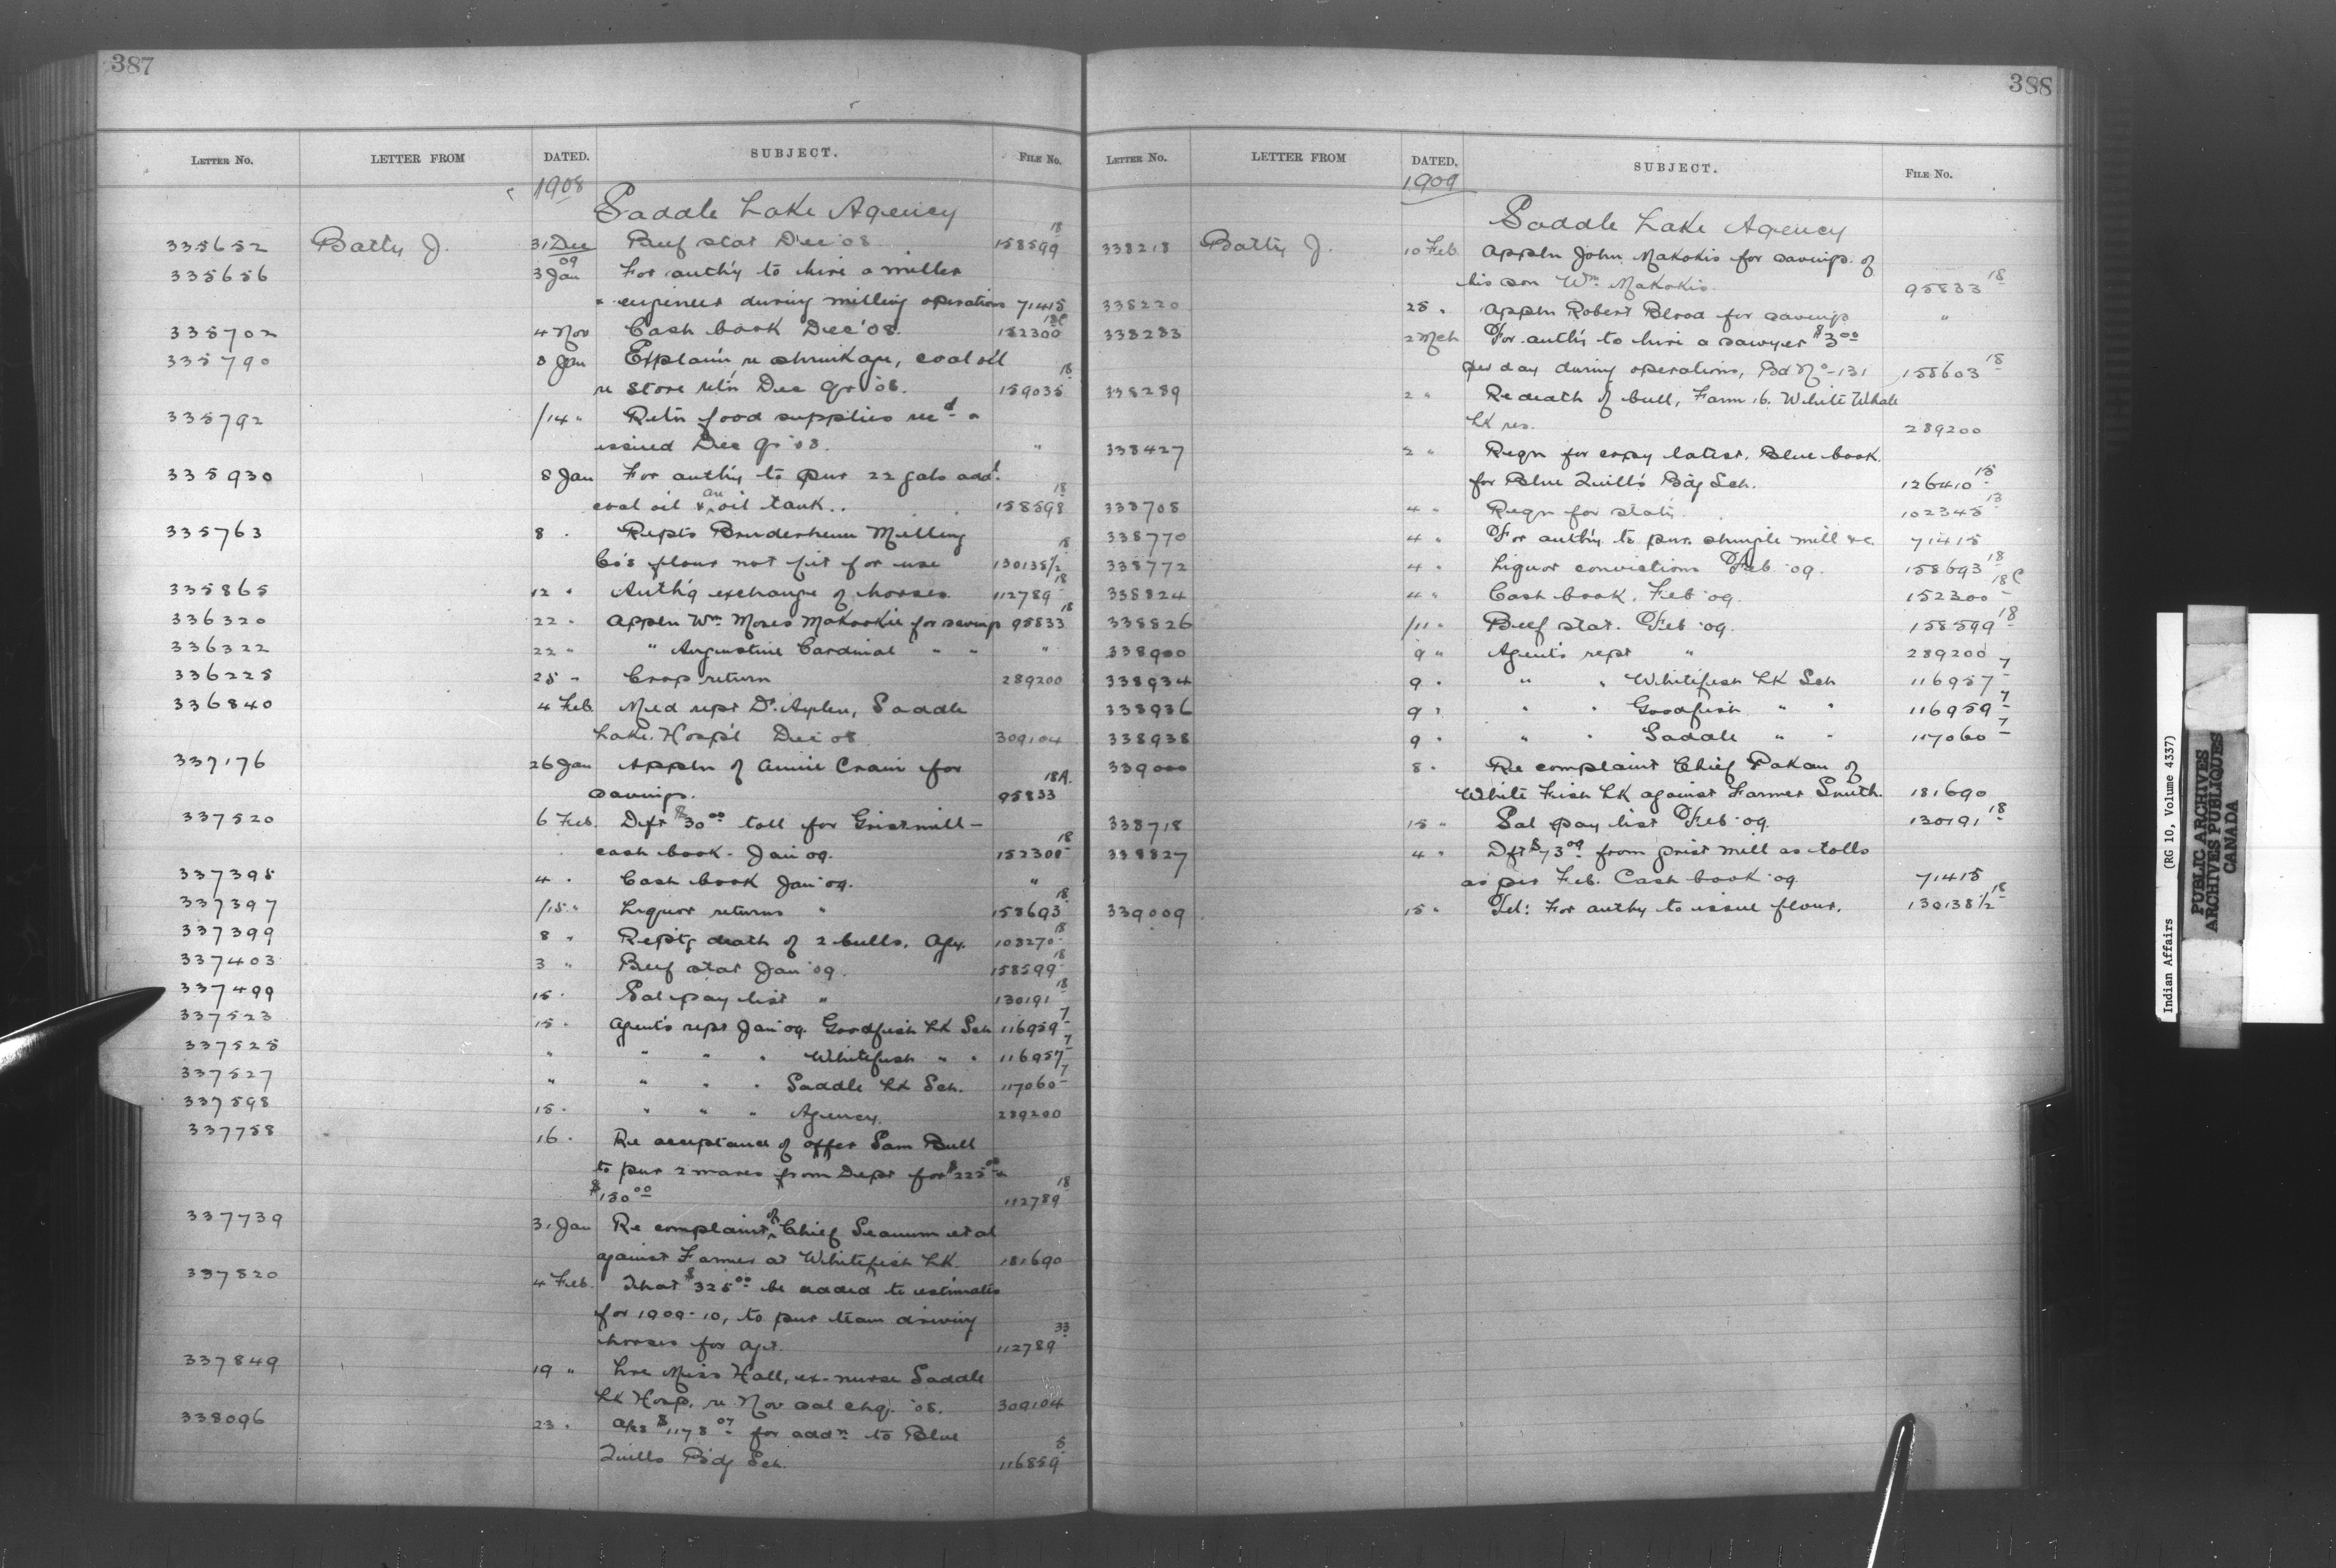 387
LETTER No. LETTER FROM DATED. SUBJECT. FILE No.
1908
Saddle Lake Agency
335652 Batty J. 31 Dec Beef stat Dec '08 158599 18
335656 3 Jan 09 For auth'y to hire a miller
engineer during milling operations 71415
335702 4 Nov Cash book Dec '08. 152300 18C
335790 8 Jan Explain re shrinkage, coal oil
re store ret'n Dec qr '08. 159035 18
335792 /14 " Ret'n food supplies recd &
issued Dec qr '08. "
335930 8 Jan For auth'y to pur 22 gals add.
coal oil & an oil tank.. 158598 18
335763 8 " Repts Bruderheim Milling
Co's flour not fit for use 130138 1/2 18
335865 12 " Auth'g exchange of horses 112789 18
336320 22 " Appln Wm Moses Makookis for savings 95833 18
336322 22 " " Augustine Cardinal " " "
336225 25 " Crop return 289200
336840 4 Feb. Med rept Dr. Aylen, Saddle
Lake. Hosp'l Dec '08 309104
337176 26 Jan Appln of Annie Crain for
savings. 95833 18A.
337520 6 Feb. Dft $30.00 toll for Gristmill –
cash book - Jan '09. 152300 18
337395 4 " Cash book Jan '09. "
337397 /15 " Liquor returns " 158693 18
337399 8 " Rept'g death of 2 bulls. Agy. 103270 18
337403 3 " Beef stat Jan '09. 158599 18
337499 15 " Sal pay list " 130191 18
337523 15 " Agent's rept Jan '09. Goodfish LK Sch 116959 7
337525 " " " " Whitefish " " 116957 7
337527 " " " " Saddle LK Sch. 117060 7
337598 15 " " " " Agency. 289200
337758 16 " Re acceptance of offer Sam Bull
to pur 2 mares from Dept for $225.00 &
$150.00 112789 18
337739 31 Jan Re complaint of Chief Seanum et al
against Farmer at Whitefish LK. 181690
337820 4 Feb. That $325.00 be added to estimates
for 1909-10, to pur team driving
horses for agt. 112789 33
337849 19 " Lre Miss Hall, ex-nurse Saddle
LK Hosp. re Nov sal chq. '08. 309104
338096 23 " a/cs $1178.07 for addn to Blue
Quills B'dg Sch. 116859 5
388
LETTER No. LETTER FROM DATED. SUBJECT. FILE No.
1909
Saddle Lake Agency
338218 Batty J. 10 Feb. Appln John Makokis for savings of
his son Wm Makokis. 95833 18
338220 25 " Appln Robert Blood for savings "
338283 2 Mch For auth'y to hire a sawyer $3.00
per day during operations, Bd No-131 158603 18
338289 2 " Re death of bull, Farm 16. White Whale
LK res. 289200
338427 2 " Reqn for copy latest. Blue book.
for Blue Quill's B'dg Sch. 126410 15
338708 4 " Reqn for stat'y. 102345 13
338770 4 " For auth'y to pur. shingle mill &c. 71415
338772 4 " Liquor convictions Feb '09. 158693 18
338824 4 " Cash book. Feb '09. 152300 18C
338826 /11 " Beef stat. Feb '09. 158599 18
338900 9 " Agent's rept " 289200
338934 9 " " " Whitefish LK Sch 116957 7
338936 9 " " " Goodfish " " 116959 7
338938 9 " " " Saddle " " 117060 7
339000 8 " Re complaint Chief Pakan of
White Fish LK against Farmer Smith. 181690
338718 15 " Sal pay list Feb '09. 130191 18
338827 4 " Dft $73.09 from grist mill as tolls
as per Feb. Cash book '09 71415
339009 15 " Tel: For authy to issue flour. 130138 1/2 18
Indian Affairs (RG 10, Volume 4337)
PUBLIC ARCHIVES
ARCHIVES PUBLIQUES
CANADA